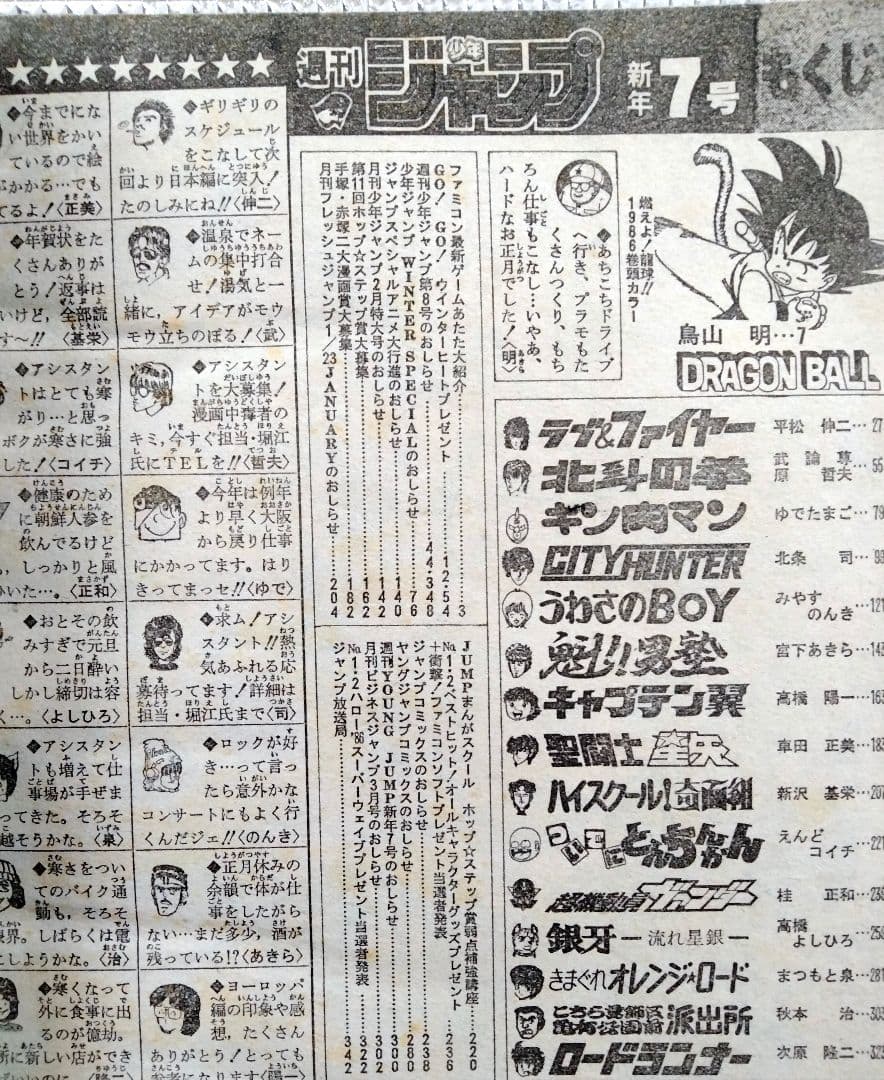 週刊
少年
ジャンプ
新年
7号
もくじ
燃えよ!龍球!!
1986巻頭カラー
鳥山 明…7
DRAGON BALL
あちこちドライブ
へ行き、プラモもた
くさんつくり、もち
ろん仕事もこなし…いやぁ、
ハードなお正月でした!〈明〉
ラブ&ファイヤー 平松 伸二…27
北斗の拳 武論尊 原 哲夫…55
キン肉マン ゆでたまご…79
CITY HUNTER 北条 司…99
うわさのBOY みやすのんき…121
魁!!男塾 宮下あきら…143
キャプテン翼 高橋 陽一…163
聖闘士星矢 車田 正美…183
ハイスクール!奇面組 新沢 基栄…207
ついでにとんちんかん えんどコイチ…221
超機動員ヴァンダー 桂 正和…23
銀牙―流れ星銀― 高橋よしひろ…25
きまぐれオレンジ★ロード まつもと泉…281
こちら葛飾区亀有公園前派出所 秋本 治…303
ロードランナー 次原 隆二…32
ファミコン最新ゲームあたた大紹介……3
GO! GO! ウインターヒートプレゼント……12・54
週刊少年ジャンプ第8号のおしらせ……44・348
少年ジャンプ WINTER SPECIALのおしらせ……76
ジャンプスペシャルアニメ大行進のおしらせ……140
月刊少年ジャンプ2月特大号のおしらせ……142
第11回ホップ☆ステップ賞大募集……162
手塚・赤塚二大漫画賞大募集……182
月刊フレッシュジャンプ1/23JANUARYのおしらせ……204
JUMPまんがスクール ホップ☆ステップ賞弱点補強講座……220
No.1・2ベストヒット!オールキャラクターグッズプレゼント……236
+衝撃!ファミコンソフトプレゼント当選者発表
ジャンプコミックスのおしらせ……238
ヤングジャンプコミックスのおしらせ……280
週刊YOUNG JUMP新年7号のおしらせ……300
月刊ビジネスジャンプ3月号のおしらせ……302
No.1・2ハロー'86スーパーウェイブプレゼント当選者発表……322
ジャンプ放送局……342
ギリギリの
スケジュール
をこなして次
回より日本編に突入!
たのしみにね!!〈伸二〉
温泉でネー
ムの集中打合
せ!湯気と一
緒に、アイデアがモウ
モウ立ちのぼる!〈武〉
アシスタン
トを大募集!
漫画中毒者の
キミ,今すぐ担当・堀江
氏にTELを!!〈哲夫〉
今年は例年
より早く大阪
から戻り仕事
にかかってます。はり
きってまっセ!!〈ゆで〉
求ム!アシ
スタント!!熱
気あふれる応
募待ってます!詳細は
担当・堀江氏まで〈司〉
ロックが好
き…って言っ
たら意外かな
コンサートにもよく行
くんだジェ!!〈のんき〉
正月休みの
余韻で体が仕
事をしたがら
ない…まだ多少,酒が
残っている!?〈あきら〉
ヨーロッパ
編の印象や感
想,たくさん
ありがとう!とっても
参考になります〈陽一〉
今までにな
い世界をかい
ているので絵
がかかる…でも
てるよ!〈正美〉
年賀状をた
くさんありが
とう!返事は
いけど,全部読
す〜!!〈基栄〉
アシスタン
トはとても寒
がり…と思っ
ボクが寒さに強
した!〈コイチ〉
健康のため
に朝鮮人参を
飲んでるけど
,しっかりと風
いた…。〈正和〉
おとその飲
みすぎで元旦
から二日酔い
しかし締切は容
く…。〈よしひろ〉
アシスタン
トも増えて仕
事場が手ぜま
ってきた。そろそ
越そうかな。〈泉〉
寒さをつい
てのバイク通
勤も,そろそ
限界。しばらくは電
にしようかな。〈治〉
寒くなって
外に食事に出
るのが億劫。
所に新しい店ができ